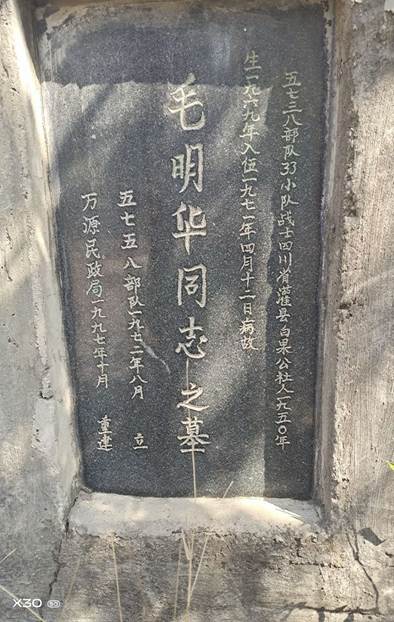 五七三八部队33小队战士四川省灌县白果公社人一九五〇年
生一九六九年入伍一九七一年四月十二日病故
毛明华同志之墓
五七五八部队一九七二年八月 立
万源民政局一九九七年十月 重建
X30 5G